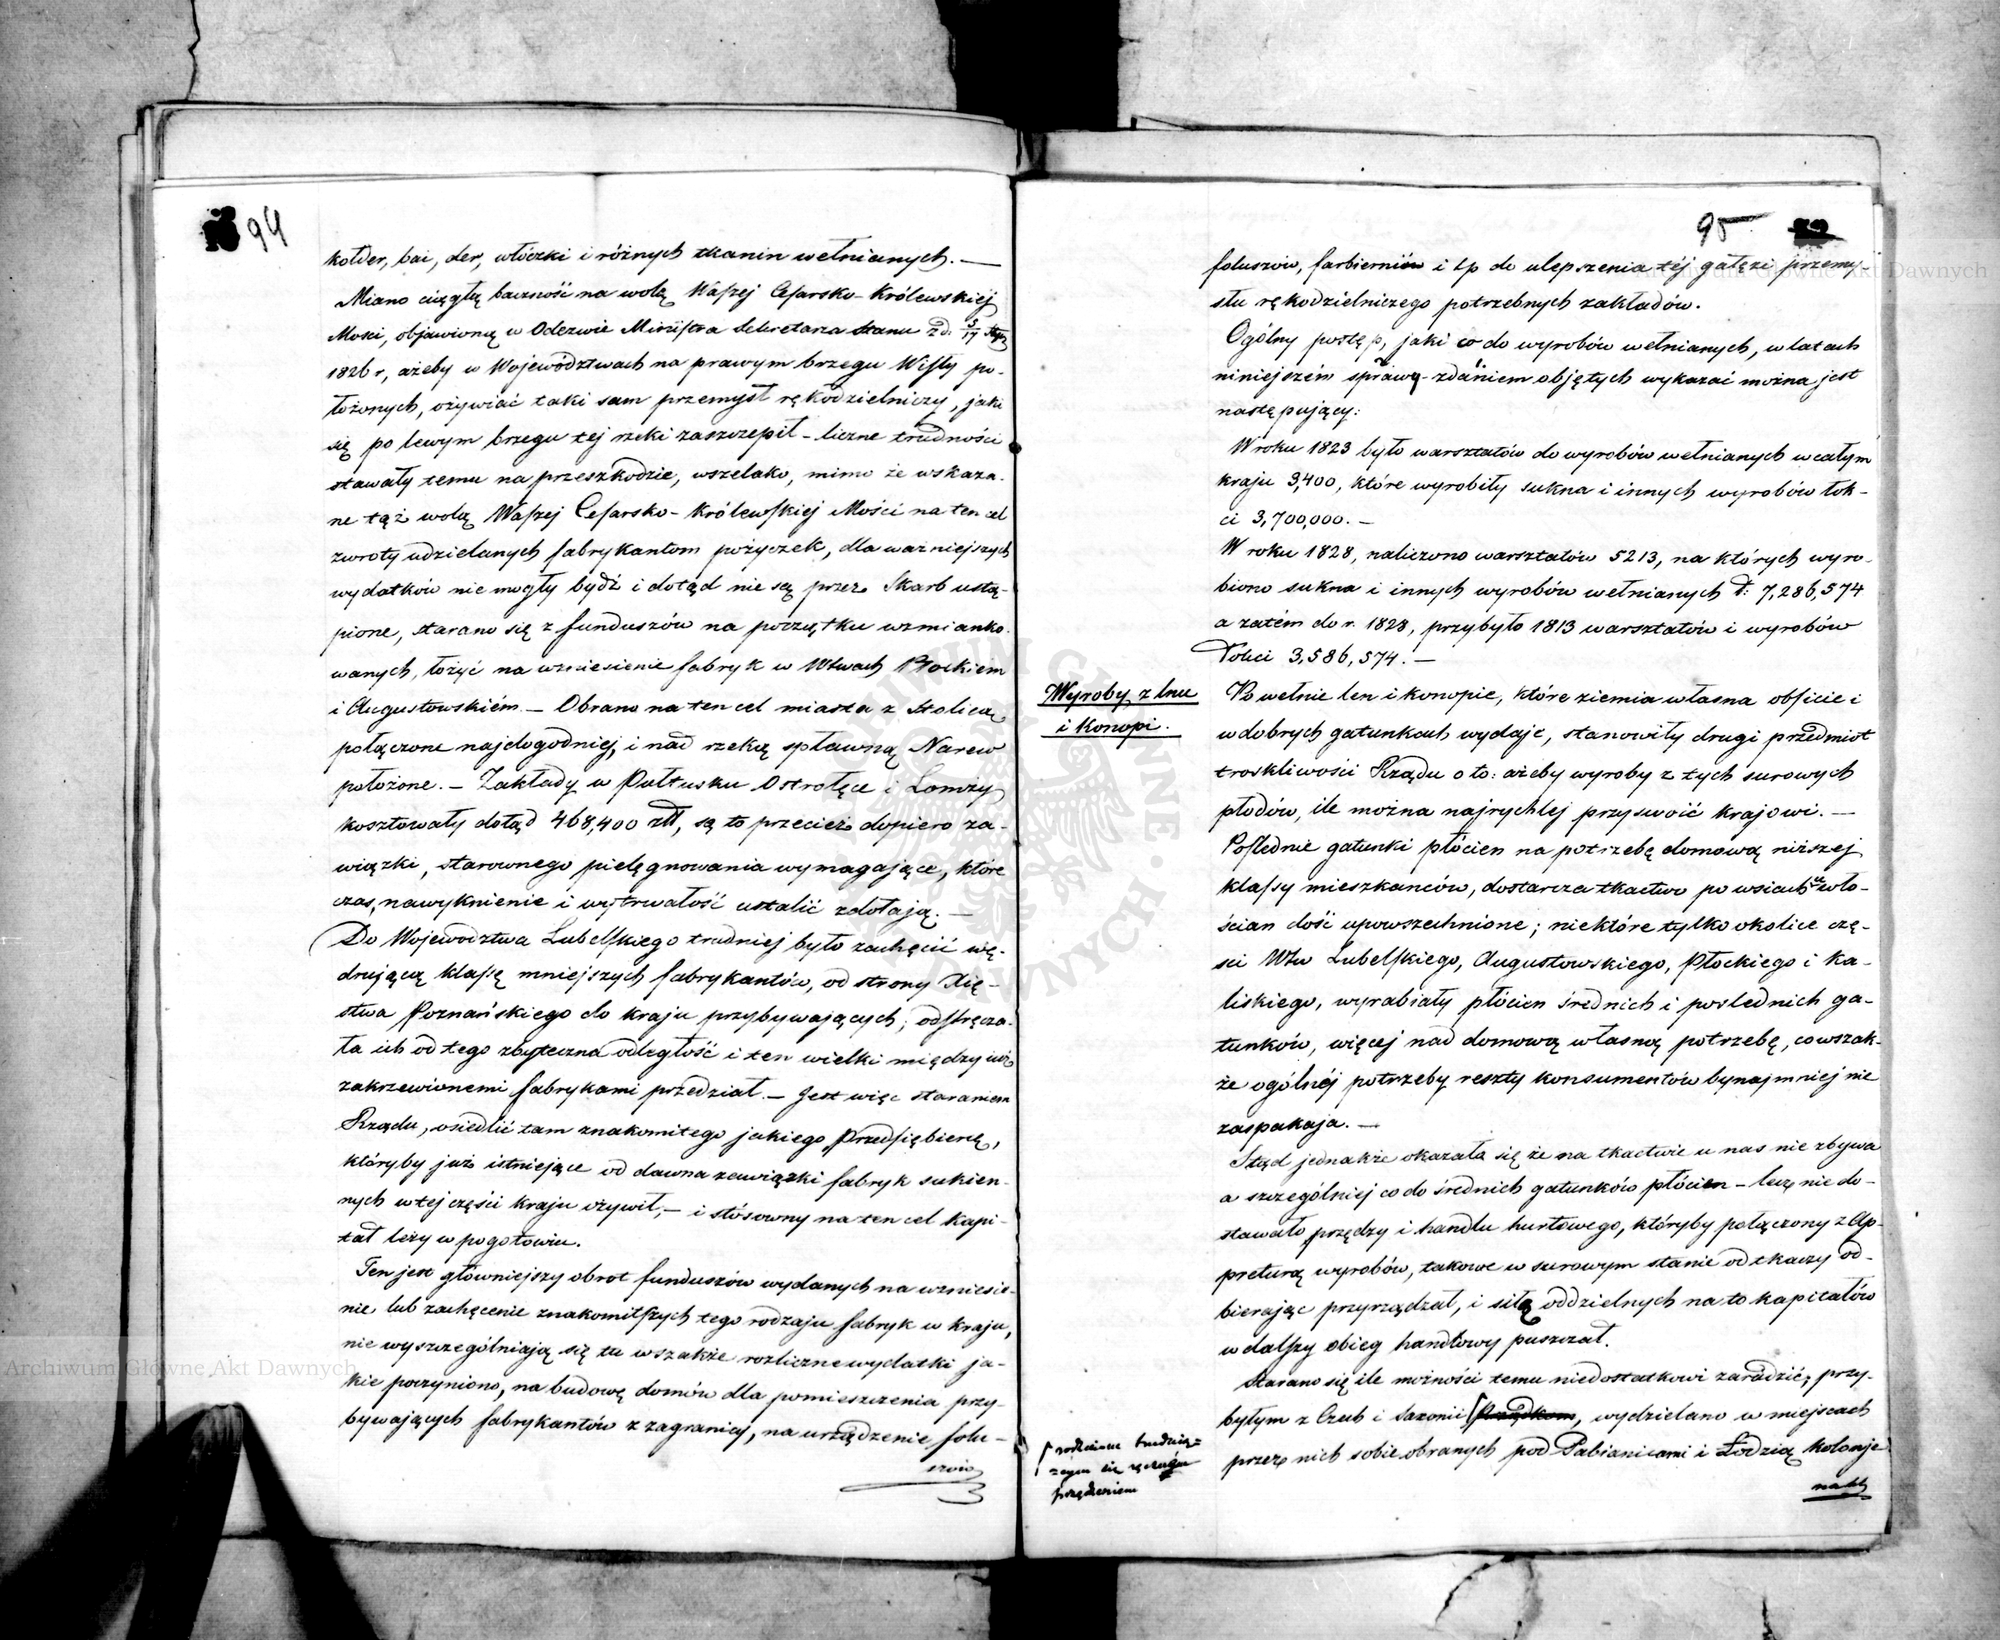 94
kołder, bai, der, włóczki i różnych tkanin wełnianych. —
Miano ciągłą baczność na wolą Waszej Cesarsko-Królewskiej
Mości, objawioną w Odezwie Ministra Sekretarza Stanu z d. 5/17 Stycz
1826 r, ażeby w Województwach na prawym brzegu Wisły po-
łożonych, ożywiać taki sam przemysł rękodzielniczy, jaki
się po lewym brzegu tej rzeki zaszczepił – liczne trudności
stawały temu na przeszkodzie, wszelako, mimo że wskaza-
ne tąż wolą Waszej Cesarsko-Królewskiej Mości na ten cel
zwroty udzielanych fabrykantom pożyczek, dla ważniejszych
wydatków nie mogły bydź i dotąd nie są przez Skarb ustą-
pione, starano się z funduszów na początku wzmianko-
wanych, łożyć na wzniesienie fabryk w Wdwach Płockiem
i Augustowskiém – Obrano na ten cel miasta z Stolicą
połączone najdogodniej, i nad rzeką spławną Narew
położone. – Zakłady w Pułtusku Ostrołęce i Łomży
kosztowały dotąd 468,400 złł, są to przecież dopiero za-
wiązki, starownego pielęgnowania wymagające, które
czas, nawyknienie i wytrwałość ustalić zdołają. —
Do Województwa Lubelskiego trudniej było zachęcić wę-
drującą klassę mniejszych fabrykantów, od strony Xię-
stwa Poznańskiego do kraju przybywających; odstręcza-
ła ich od tego zbyteczna odległość i ten wielki między już
zakrzewionemi fabrykami przedział. – Jest więc staraniem
Rządu, osiedlić tam znakomitego jakiego Przedsiębiercę,
któryby już istniejące od dawna zawiązki fabryk sukien-
nych w tej części kraju ożywił, – i stósowny na ten cel kapi-
tał leży w pogotowiu.
Ten jest główniejszy obrot funduszów wydanych na wzniesie-
nie lub zachęcenie znakomitszych tego rodzaju fabryk w kraju,
nie wyszczególniają się tu wszakże rozliczne wydatki ja-
kie poczyniono, na budowę domów dla pomieszczenia przy-
bywających fabrykantów z zagranicy, na urządzenie folu-
szów
95
foluszów, farbierniów i tp do ulepszenia téj gałęzi przemy-
słu rękodzielniczego potrzebnych zakładów.
Ogólny postęp, jaki co do wyrobów wełnianych, w latach
niniejszém sprawo-zdaniem objętych wykazać można jest
następujący:
W roku 1823 było warsztatów do wyrobów wełnianych w całym
kraju 3,400, które wyrobiły sukna i innych wyrobów łok-
ci 3,700,000. —
W roku 1828, naliczono warsztatów 5213, na których wyro-
biono sukna i innych wyrobów wełnianych ł: 7,286,574
a zatém do r. 1828, przybyło 1813 warsztatów i wyrobów
łokci 3,586,574. —
Wyroby z lnu
i konopi.
Po wełnie len i konopie, które ziemia własna obficie i
w dobrych gatunkach wydaje, stanowiły drugi przedmiot
troskliwości Rządu o to: ażeby wyroby z tych surowych
płodów, ile można najrychlej przyswoić krajowi. —
Poślednie gatunki płócien na potrzebę domową niższej
klassy mieszkańców, dostarcza tkactwo po wsiach u wło-
ścian dość upowszechnione; niektóre tylko okolice czę-
ści Wdw Lubelskiego, Augustowskiego, Płockiego i Ka-
liskiego, wyrabiały płócien średnich i poslednich ga-
tunków, więcej nad domową własną potrzebę, co wszak-
że ogólnéj potrzeby reszty konsumentów bynajmniej nie
zaspakaja. —
Ztąd jednakże okazała się że na tkactwie u nas nie zbywa
a szczególniej co do średnich gatunków płócien – lecz nie do-
stawało przędzy i handlu hurtowego, któryby połączony z Ap-
preturą wyrobów, takowe w surowym stanie od tkaczy od-
bierając przyrządzał, i siłą oddzielnych na to kapitałów
w dalszy obieg handlowy puszczał.
Starano się ile możności temu niedostatkowi zaradzić, przy-
byłym z Czech i Saxonii Prządkom, wydzielano w miejscach
przez nich sobie obranych pod Pabianicami i Łodzią kolonje
rodzinom trudnią-
cym się ręcznym
przędzeniem